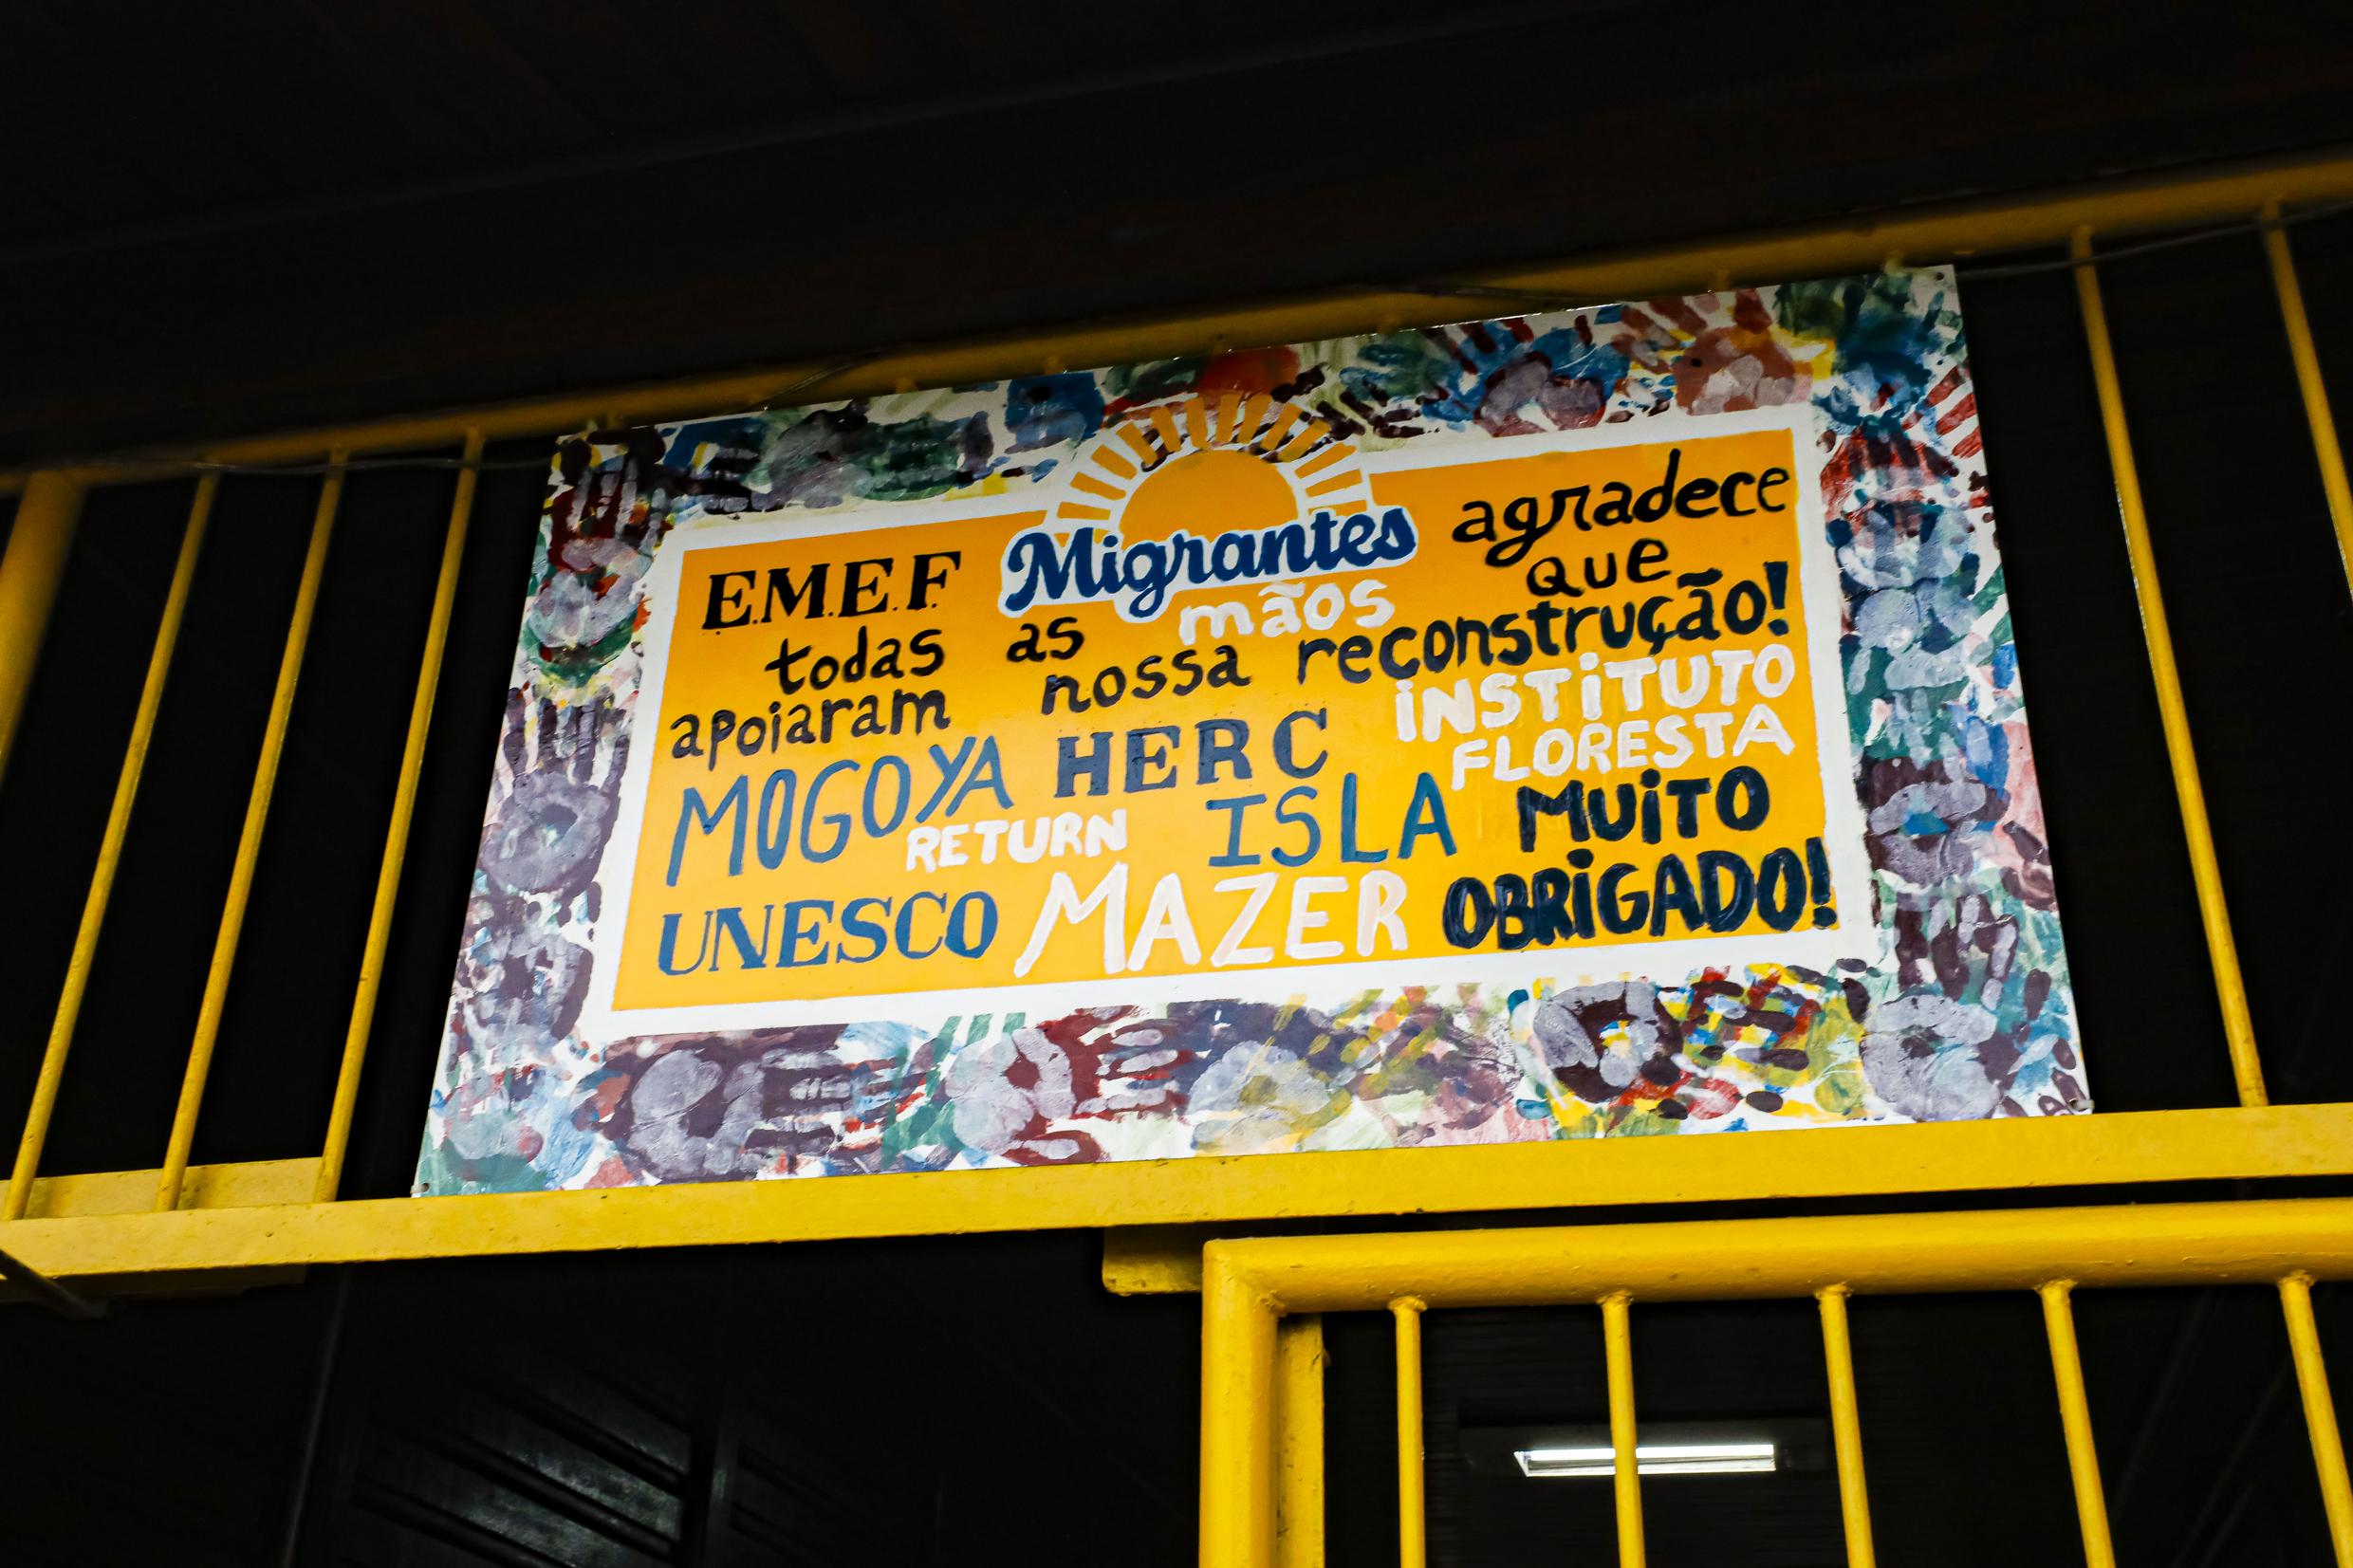 E.M.E.F Migrantes agradece
todas as mãos que
apoiaram nossa reconstrução!
MOGOYA HERC INSTITUTO
FLORESTA
RETURN ISLA MUITO
UNESCO MAZER OBRIGADO!